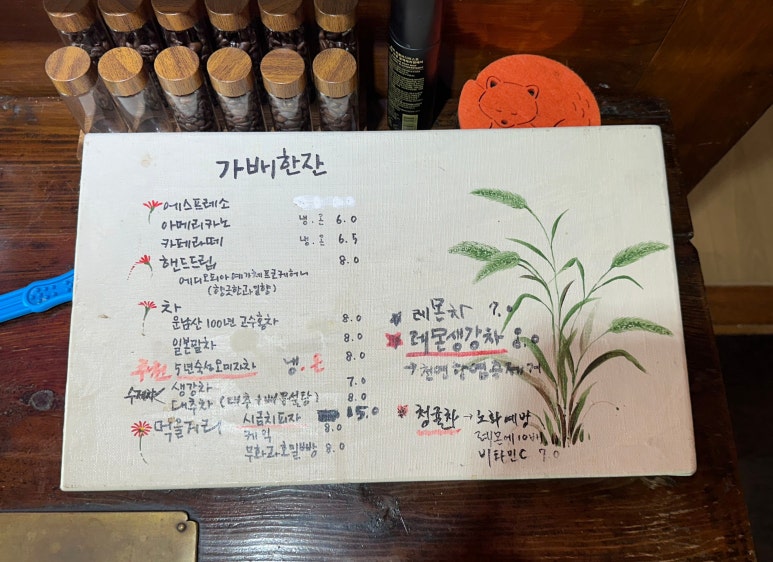 가배한잔
에스프레소
아메리카노 냉.온 6.0
카페라떼 냉.온 6.5
핸드드립 8.0
에디오피아 예가체프코케허니
(향긋한과일향)
차
운남산 100년 고수홍차 8.0
일본말차 8.0
추천 5년숙성오미자차 냉.온 8.0
수제차 생강차 7.0
대추차 (대추 1배 8.0
먹을거리 시금치피자 15.0
케익 8.0
무화과호밀빵 8.0
레몬차 7.0
레몬생강차 8.0
→ 천연항염증
청귤차 → 노화예방
레몬에 10배
비타민C 7.0